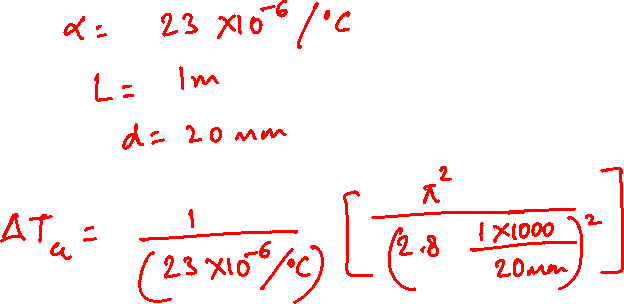 α = 23 ×10⁻⁶ /°C
L = 1m
d = 20 mm
ΔTₐ = 1 / (23 ×10⁻⁶/°C) [ π² / (2.8 1×1000 / 20mm)² ]